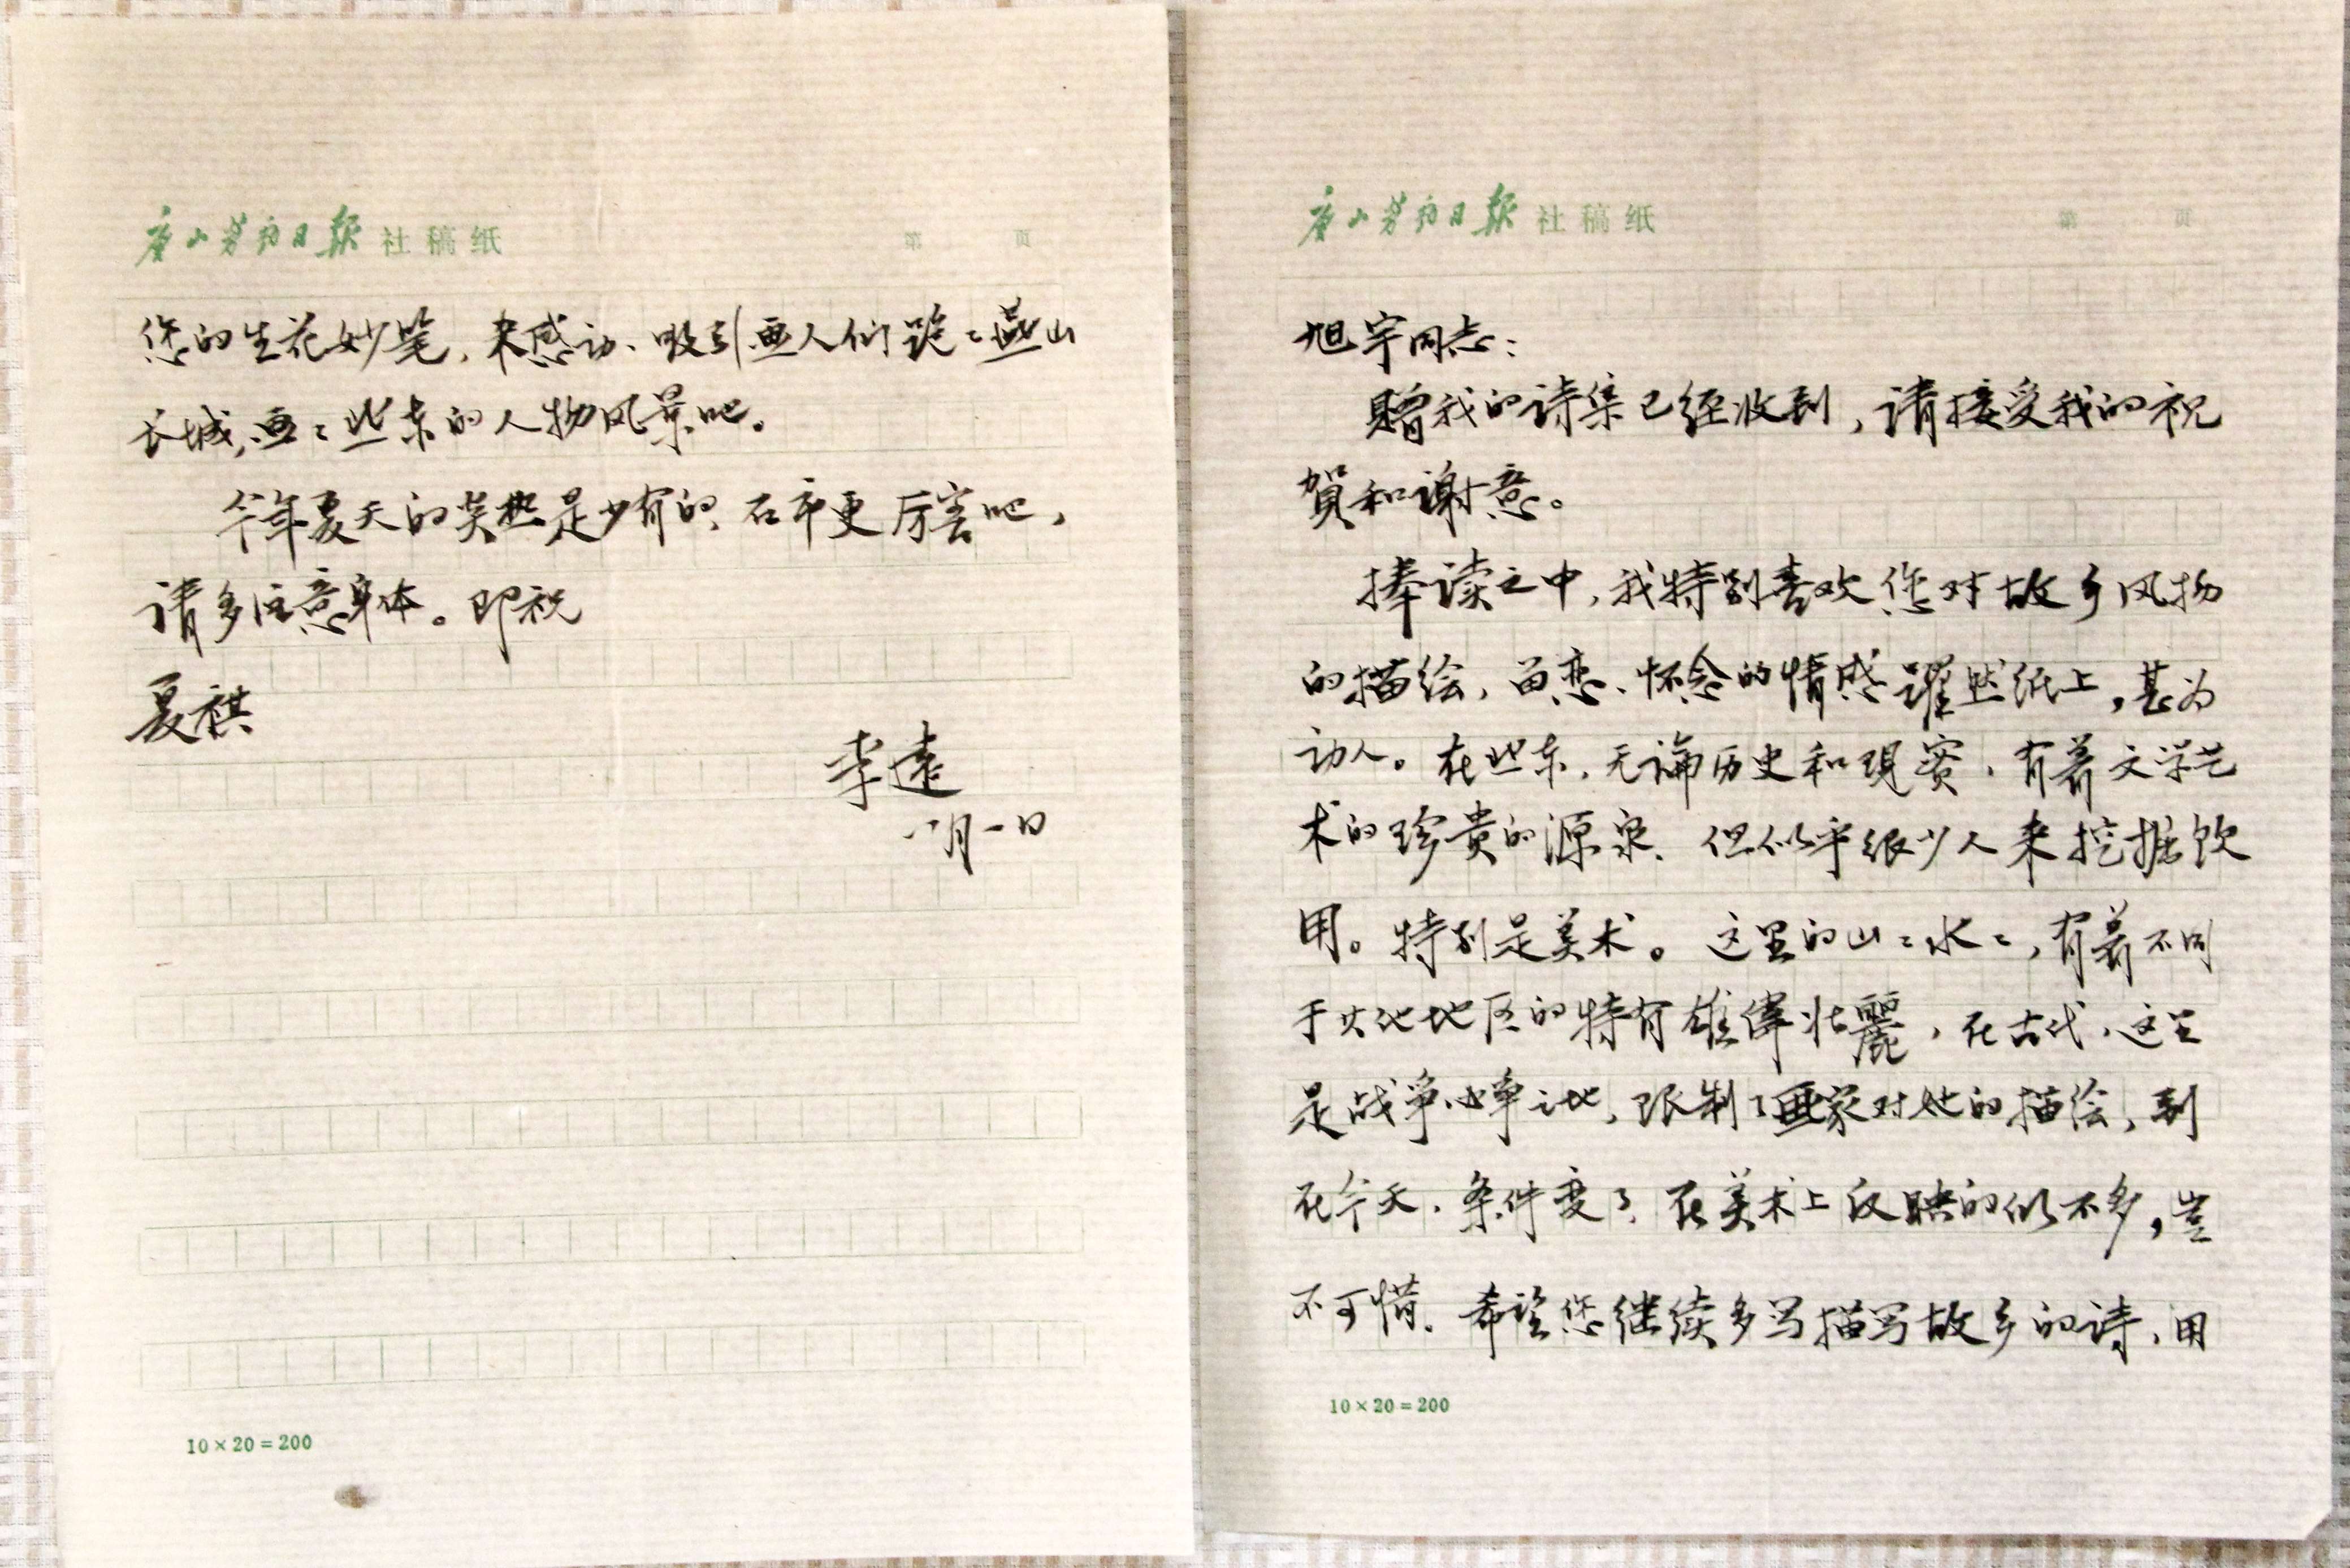 唐山劳动日报社稿纸 第 页
旭宇同志:
赠我的诗集已经收到,请接受我的祝
賀和谢意。
捧读之中,我特别喜欢您对故乡风物
的描绘,留恋、怀念的情感躍然纸上,甚为
动人。在冀东,无论历史和现实,有着文学艺
术的珍贵的源泉,但似乎很少人来挖掘饮
用。特别是美术。这里的山々水々,有着不同
于其他地区的特有雄偉壮麗,在古代,这里
是战争必争之地,限制了画家对她的描绘,到
在今天,条件变了,在美术上反映的仍不多,岂
不可惜。希望您继续多写描写故乡的诗,用
10×20=200
唐山劳动日报社稿纸 第 页
您的生花妙笔,来感动、吸引画人们跑々燕山
长城,画々冀东的人物风景吧。
今年夏天的炎热是少有的,石市更厉害吧,
请多注意身体。即祝
夏祺
李遠
八月一日
10×20=200